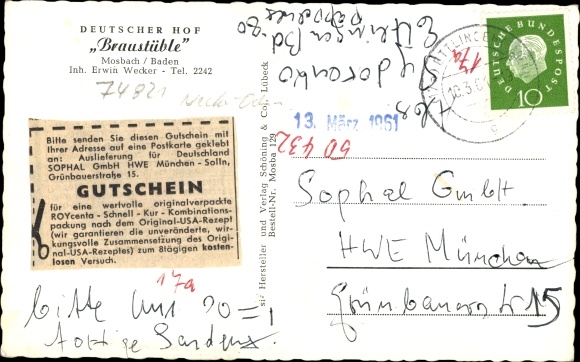 DEUTSCHER HOF
„Braustüble"
Mosbach / Baden
Inh. Erwin Wecker - Tel. 2242
74821
Bitte senden Sie diesen Gutschein mit
Ihrer Adresse auf eine Postkarte geklebt
an: Auslieferung für Deutschland
SOPHAL GmbH HWE München - Solln,
Grünbauerstraße 15.
GUTSCHEIN
für eine wertvolle originalverpackte
ROYcenta - Schnell - Kur - Kombinations-
packung nach dem Original-USA-Rezept
(wir garantieren die unveränderte, wir-
kungsvolle Zusammensetzung des Origi-
nal-USA-Rezeptes) zum 8tägigen kosten-
losen Versuch.
17a
bitte um 20 =
Hersteller und Verlag Schöning & Co., Lübeck
Bestell-Nr. Mosba 129
Ettlingen Bd
13. März 1961
50432
17a
DEUTSCHE BUNDESPOST
10
Sophal GmbH.
HWE München
Grünbauerstr 15